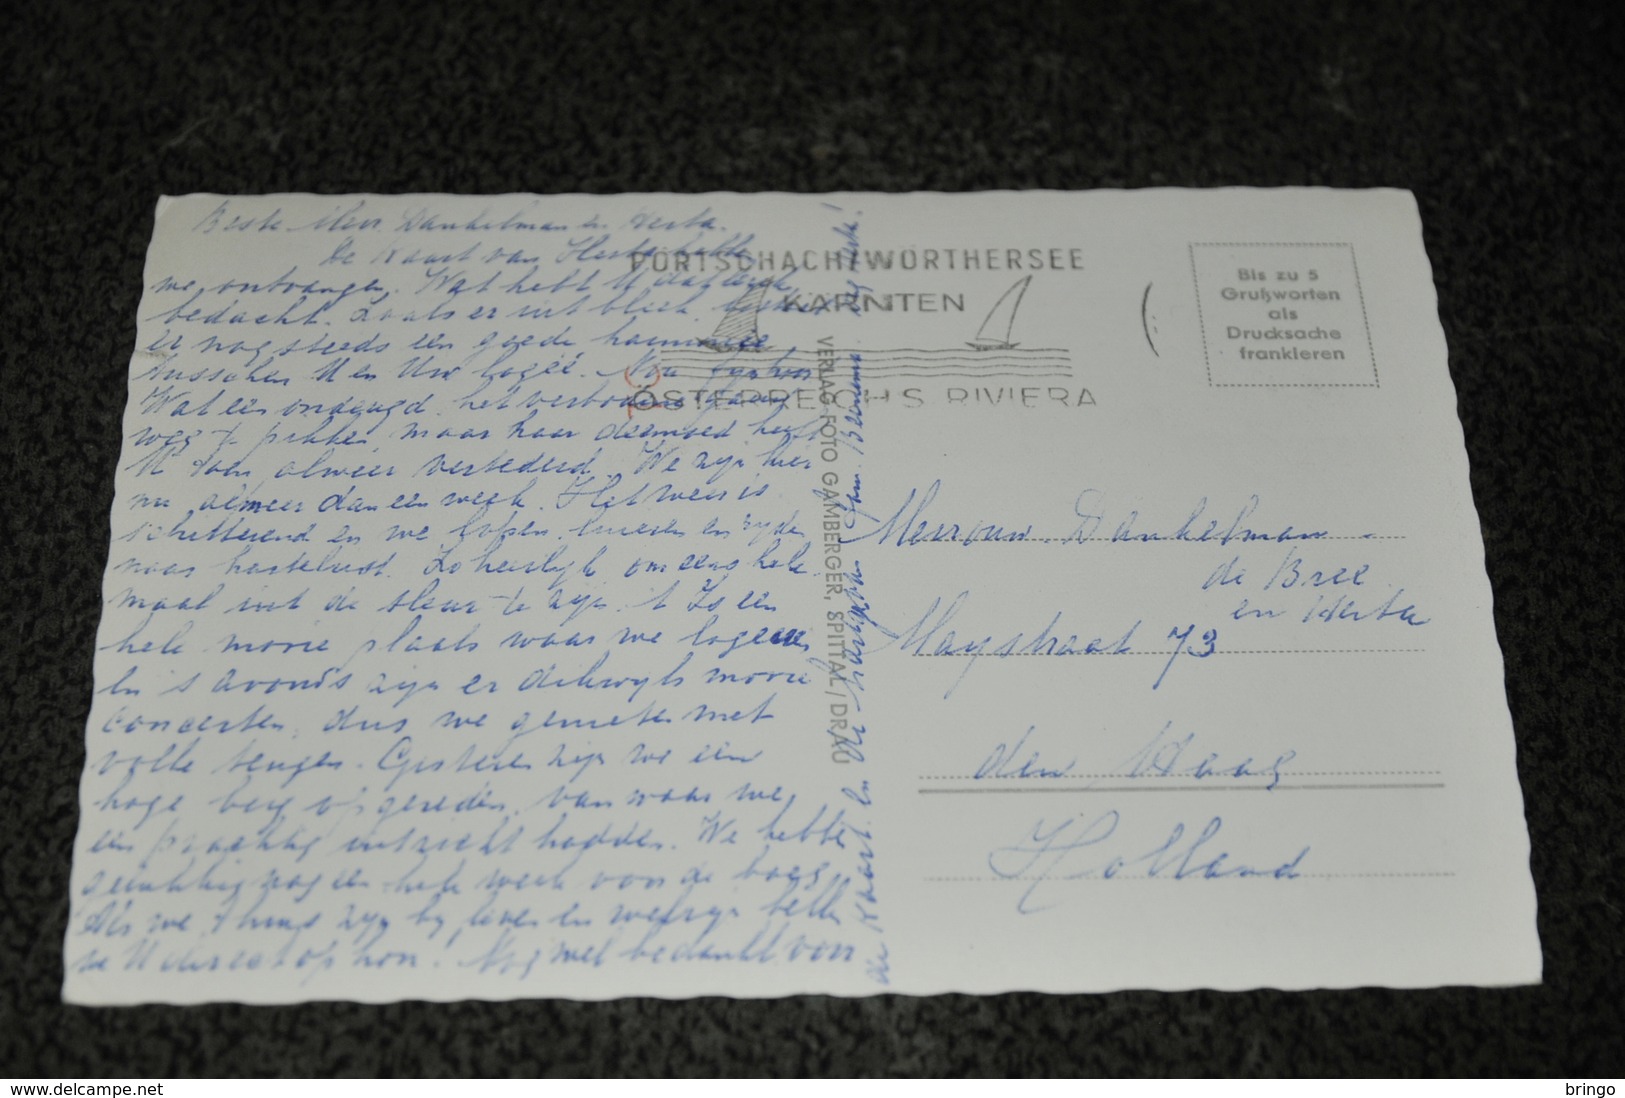 Beste Mevr. Dankelman en Herta.
De kaart van Herta hebben
we ontvangen. Wat hebt U
bedacht. Zoals er uit bleek
er nog steeds een goede harmonie
tusschen U en Uw logée.
Wat een ondeugd, het verboden
weg te pikken maar haar deemoed heeft
U toen alweer vertederd. We zijn hier
nu al meer dan een week. Het weer is
schitterend en we loopen, luieren en rijden
naar hartelust. Zo heerlijk om eens hele-
maal uit de sleur te zijn. 't Is een
hele mooie plaats waar we logeeren
En 's avonds zijn er dikwijls mooie
concerten, dus we genieten met
volle teugen. Gisteren zijn we een
hoge berg op gereden, van waar we
een prachtig uitzicht hadden. We hebben
gelukkig nog een hele week voor de boeg.
Als we thuis zijn bij leven en welzijn bellen
we U direct op hoor. Nog wel bedankt voor
de kaart. En de hartelijke Fam.
PÖRTSCHACH/WÖRTHERSEE
KÄRNTEN
ÖSTERREICH'S RIVIERA
VERLAG FOTO GAMBERGER, SPITTAL/DRAU
Bis zu 5
Grußworten
als
Drucksache
frankieren
Mevrouw Dankelman
de Bree
en Herta
Maystraat 73
den Haag
Holland
delcampe.net
bringo